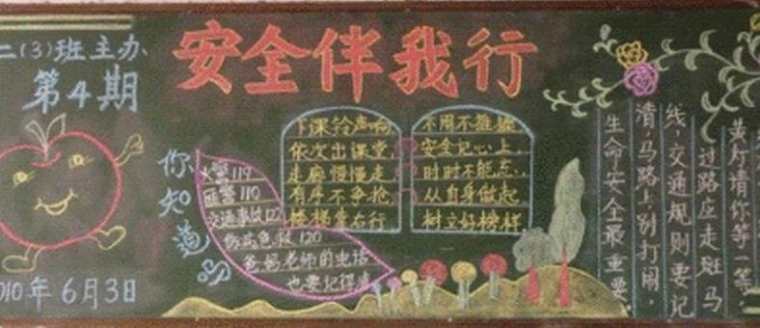 二(3)班主办
第4期
安全伴我行
2010年6月3日
你知道
火警119
匪警110
交通事故122
伤病急救120
爸妈老师的电话
也要记得清
下课铃声响
依次出课堂
走廊慢慢走
有序不争抢
楼梯靠右行
不用不推搡
安全记心上
时时不能忘
从自身做起
树立好榜样
黄灯请你等一等,
过路应走斑马
线,交通规则要记
清,马路上别打闹,
生命安全最重要